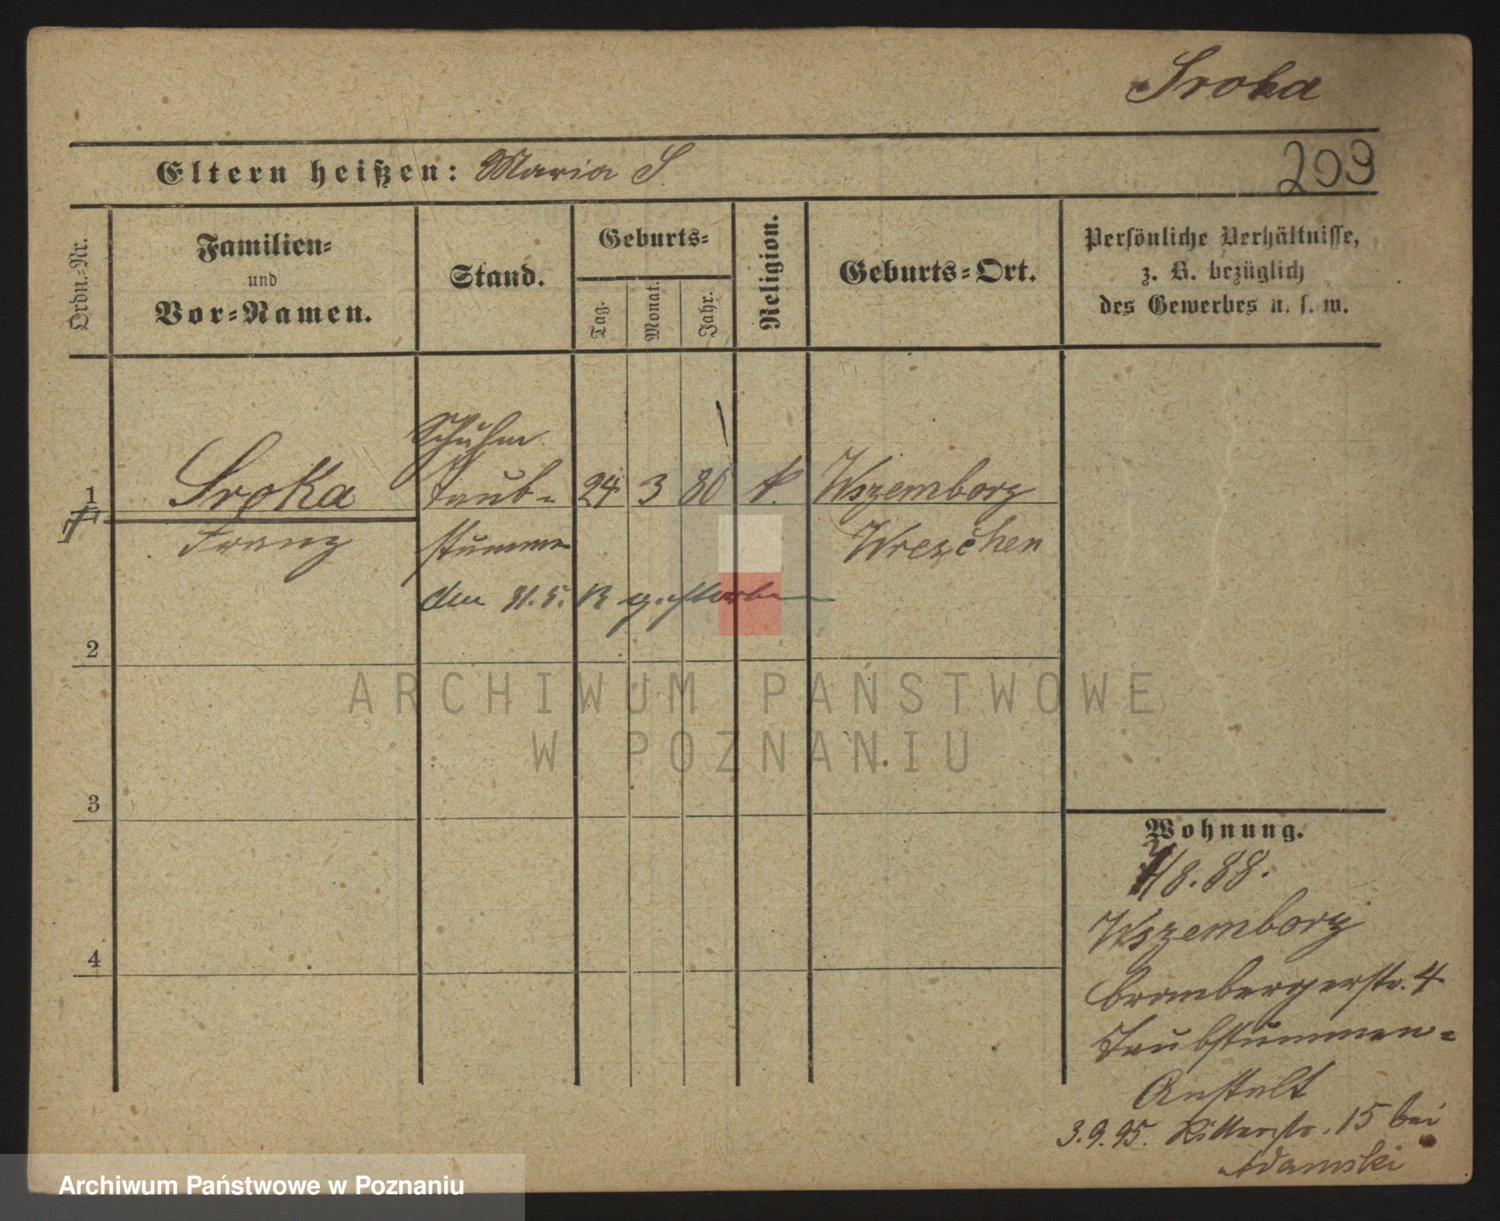 Sroka
Eltern heißen: Maria S.
209
Ordn.-Nr.
Familien-
und
Vor-Namen.
Stand.
Geburts-
Tag.
Monat.
Jahr.
Religion.
Geburts-Ort.
Persönliche Verhältnisse,
z. B. bezüglich
des Gewerbes u. s. w.
Schuhm.
1 Sroka Taub- 24 3 80 k. Wszemborz
Franz stumme Wreschen
den 31.5. 13 gestorben
2
3
4
Wohnung.
/8.88.
Wszemborz
Brombergerstr. 4
Taubstummen-
Anstalt
3.9.95. Ritterstr. 15 bei
Adamski
ARCHIWUM PAŃSTWOWE
W POZNANIU
Archiwum Państwowe w Poznaniu